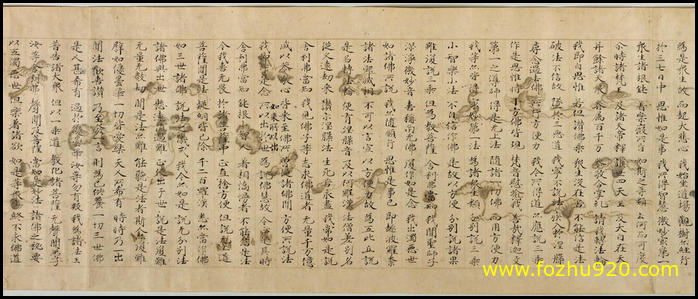 為是眾生故 而起大悲心 我始坐道場 觀樹亦經行
於三七日中 思惟如是事 我所得智慧 微妙最第一
眾生諸根鈍 著樂癡所盲 如斯之等類 云何而可度
尒時諸梵王 及諸天帝釋 護世四天王 及大自在天
并餘諸天眾 眷屬百千萬 恭敬合掌禮 請我轉法輪
我即自思惟 若但讚佛乘 眾生沒在苦 不能信是法
破法不信故 墜於三惡道 我寧不說法 疾入於涅槃
尋念過去佛 所行方便力 我今所得道 亦應說三乘
作是思惟時 十方佛皆現 梵音慰喻我 善哉釋迦文
第一之導師 得是無上法 隨諸一切佛 而用方便力
我等亦皆得 最妙第一法 為諸眾生類 分別說三乘
小智樂小法 不自信作佛 是故以方便 分別說諸果
雖復說三乘 但為教菩薩 舍利弗當知 我聞聖師子
深淨微妙音 喜稱南無佛 復作如是念 我出濁惡世
如諸佛所說 我亦隨順行 思惟是事已 即趣波羅柰
諸法寂滅相 不可以言宣 以方便力故 為五比丘說
是名轉法輪 便有涅槃音 及以阿羅漢 法僧差別名
從久遠劫來 讚示涅槃法 生死苦永盡 我常如是說
舍利弗當知 我見佛子等 志求佛道者 無量千万億
咸以恭敬心 皆來至佛所 曾從諸佛聞 方便所說法
我即作是念 如來所以出 為說佛慧故 今正是時
舍利弗當知 鈍根小智人 著相憍慢者 不能信是法
今我喜無畏 於諸菩薩中 正直捨方便 但說無上道
菩薩聞是法 疑網皆已除 千二百羅漢 悉亦當作佛
如三世諸佛 說法之儀式 我今亦如是 說無分別法
諸佛興出世 懸遠值遇難 正使出于世 說是法復難
無量無數劫 聞是法亦難 能聽是法者 斯人亦復難
譬如優曇華 一切皆愛樂 天人所希有 時時乃一出
聞法歡喜讚 乃至發一言 則為已供養 一切三世佛
是人甚希有 過於優曇華 汝等勿有疑 我為諸法王
普告諸大眾 但以一乘道 教化諸菩薩 無聲聞弟子
汝等舍利弗 聲聞及菩薩 當知是妙法 諸佛之祕要
以五濁惡世 但樂著諸欲 如是等眾生 終不求佛道
www.fozhu920.com